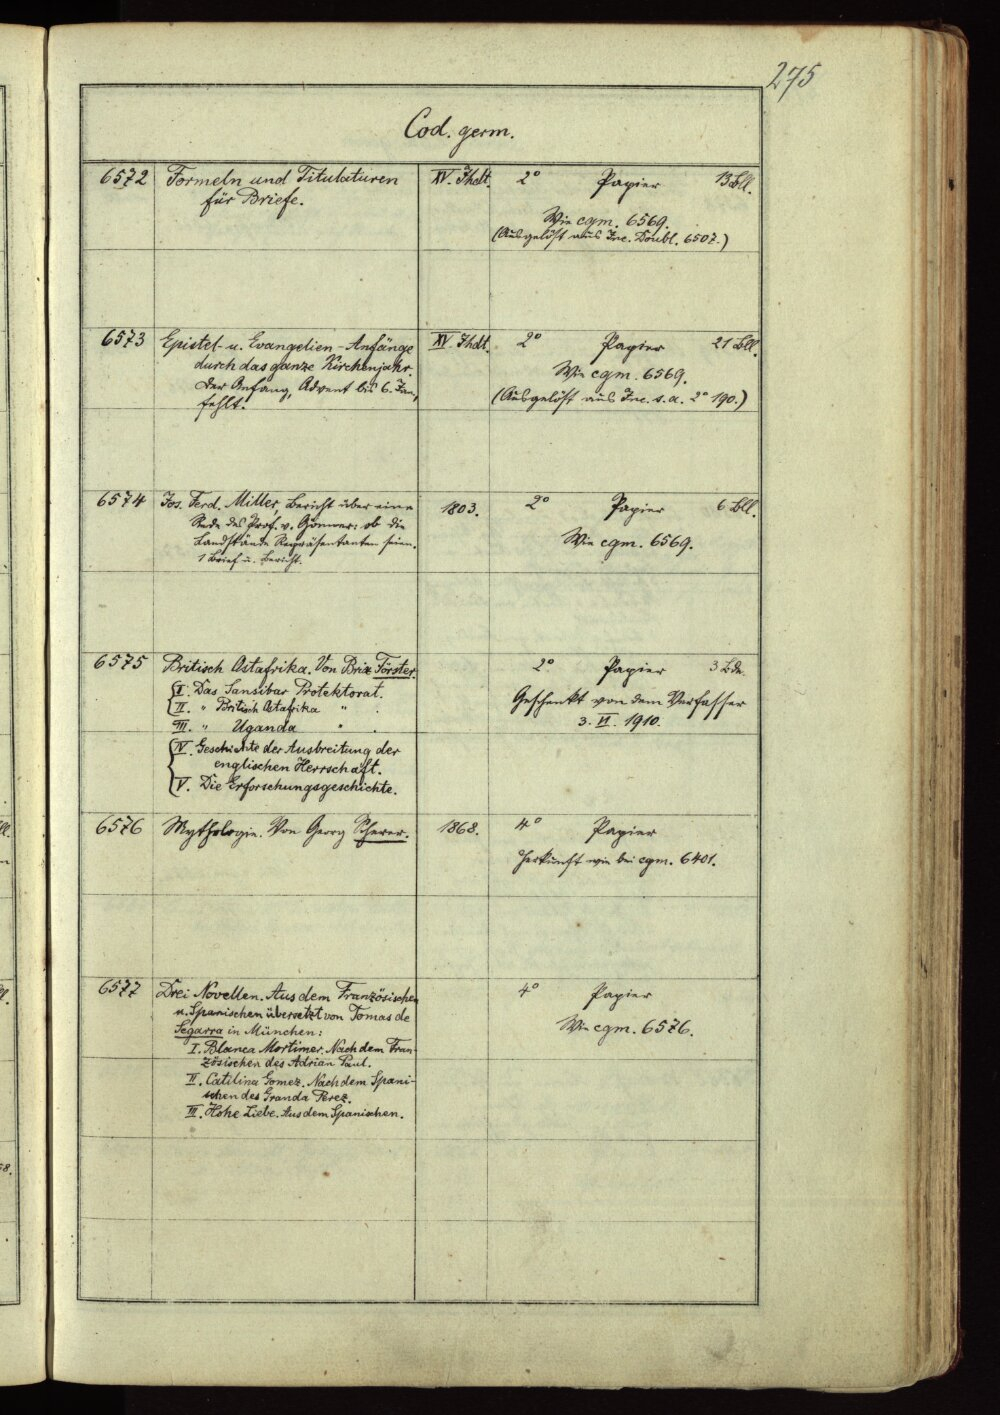 275
Cod. germ.
6572 Formeln und Titulaturen XV. Jhdt. 2° Papier 13 Bll.
für Briefe.
Wie cgm. 6569.
(Ausgelöst aus Inc. Doubl. 6507.)
6573 Epistel- u. Evangelien-Anfänge XV Jhdt. 2° Papier 21 Bll.
durch das ganze Kirchenjahr. Wie cgm. 6569.
Der Anfang, Advent bis 6. Jan., (Ausgelöst aus Inc. s. a. 2° 190.)
fehlt.
6574 Jos. Ferd. Miller, Bericht über eine 1803. 2° Papier 6 Bll.
Rede des Prof. v. Gönner: ob die
Landstände Repräsentanten seien. Wie cgm. 6569.
1 Brief u. Bericht.
6575 Britisch Ostafrika. Von Brix Förster. 2° Papier 3 Bde.
I. Das Sansibar Protektorat. Geschenkt von dem Verfasser
II. " Britisch Ostafrika " . 3. VI. 1910.
III. " Uganda " .
IV. Geschichte der Ausbreitung der
englischen Herrschaft.
V. Die Erforschungsgeschichte.
6576 Mythologie. Von Georg Scherer. 1868. 4° Papier
Herkunft wie bei cgm. 6401.
6577 Drei Novellen. Aus dem Französischen 4° Papier
u. Spanischen übersetzt von Tomas de
Segarra in München: Wie cgm. 6576.
I. Blanca Mortimer. Nach dem Fran-
zösischen des Adrian Paul.
II. Catilina Gomez. Nach dem Spani-
schen des Granda Perez.
III. Hohe Liebe. Aus dem Spanischen.